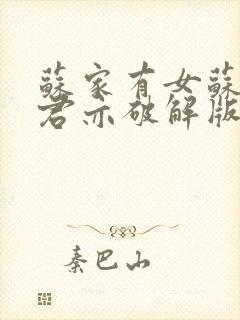 蘇家有女蘇
君亦破解版
秦巴山